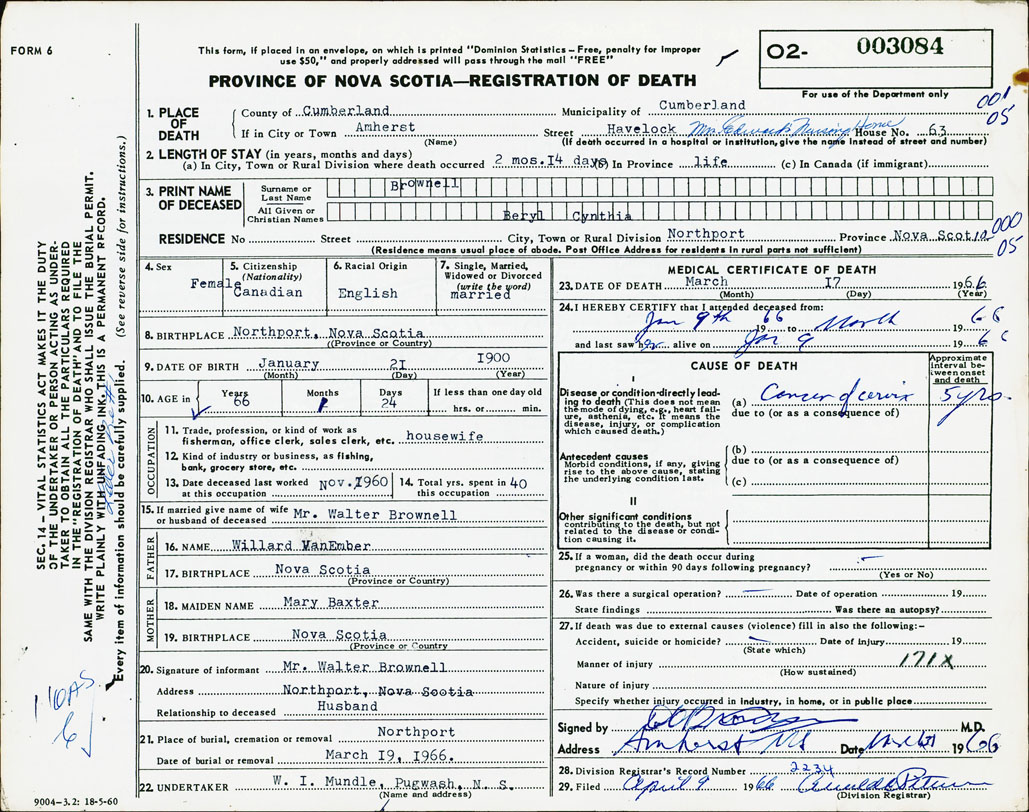 FORM 6
This form, if placed in an envelope, on which is printed "Dominion Statistics – Free, penalty for improper
use $50," and properly addressed will pass through the mail "FREE"
PROVINCE OF NOVA SCOTIA—REGISTRATION OF DEATH
O2- 003084
For use of the Department only
001
05
1. PLACE OF DEATH
County of Cumberland Municipality of Cumberland
If in City or Town Amherst Street Havelock Mrs. Edwards Nursing Home House No. 63
(Name) (If death occurred in a hospital or institution, give the name instead of street and number)
2. LENGTH OF STAY (in years, months and days)
(a) In City, Town or Rural Division where death occurred 2 mos. 14 days (b) In Province life (c) In Canada (if immigrant)
3. PRINT NAME OF DECEASED
Surname or Last Name Brownell
All Given or Christian Names Beryl Cynthia
000
05
RESIDENCE No Street City, Town or Rural Division Northport Province Nova Scotia
(Residence means usual place of abode. Post Office Address for residents in rural parts not sufficient)
4. Sex Female
5. Citizenship (Nationality) Canadian
6. Racial Origin English
7. Single, Married, Widowed or Divorced (write the word) married
8. BIRTHPLACE Northport, Nova Scotia
(Province or Country)
9. DATE OF BIRTH January 21 1900
(Month) (Day) (Year)
10. AGE in Years 66 Months 1 Days 24 If less than one day old hrs. or min.
OCCUPATION
11. Trade, profession, or kind of work as
fisherman, office clerk, sales clerk, etc. housewife
12. Kind of industry or business, as fishing,
bank, grocery store, etc.
13. Date deceased last worked at this occupation Nov. 1960 14. Total yrs. spent in this occupation 40
15. If married give name of wife or husband of deceased Mr. Walter Brownell
FATHER
16. NAME Willard VanEmber
17. BIRTHPLACE Nova Scotia
(Province or Country)
MOTHER
18. MAIDEN NAME Mary Baxter
19. BIRTHPLACE Nova Scotia
(Province or Country
20. Signature of informant Mr. Walter Brownell
Address Northport, Nova Scotia
Relationship to deceased Husband
21. Place of burial, cremation or removal Northport
Date of burial or removal March 19, 1966.
22. UNDERTAKER W. I. Mundle, Pugwash, N. S.
(Name and address)
MEDICAL CERTIFICATE OF DEATH
23. DATE OF DEATH March 17 1966
(Month) (Day) (Year)
24. I HEREBY CERTIFY that I attended deceased from:
Jan 9th 1966 to March 1966
and last saw her alive on Jan 9 1966
CAUSE OF DEATH
Approximate interval between onset and death
I
Disease or condition directly leading to death (This does not mean the mode of dying, e.g., heart failure, asthenia, etc. It means the disease, injury, or complication which caused death.)
(a) Cancer of cervix 5 yrs.
due to (or as a consequence of)
Antecedent causes
Morbid conditions, if any, giving rise to the above cause, stating the underlying condition last.
(b)
due to (or as a consequence of)
(c)
II
Other significant conditions
contributing to the death, but not related to the disease or condition causing it.
25. If a woman, did the death occur during
pregnancy or within 90 days following pregnancy? -
(Yes or No)
26. Was there a surgical operation? — Date of operation 19
State findings Was there an autopsy?
27. If death was due to external causes (violence) fill in also the following:–
Accident, suicide or homicide? — Date of injury 19
(State which)
Manner of injury 171X
(How sustained)
Nature of injury
Specify whether injury occurred in industry, in home, or in public place
Signed by M.D.
Address Amherst NS Date 1966
28. Division Registrar's Record Number 2234
29. Filed April 9 1966
(Division Registrar)
SEC. 14 – VITAL STATISTICS ACT MAKES IT THE DUTY
OF THE UNDERTAKER OR PERSON ACTING AS UNDER-
TAKER TO OBTAIN ALL THE PARTICULARS REQUIRED
IN THE "REGISTRATION OF DEATH" AND TO FILE THE
SAME WITH THE DIVISION REGISTRAR WHO SHALL ISSUE THE BURIAL PERMIT.
WRITE PLAINLY WITH UNFADING INK. THIS IS A PERMANENT RECORD.
Every item of information should be carefully supplied. (See reverse side for instructions.)
9004-3.2: 18-5-60